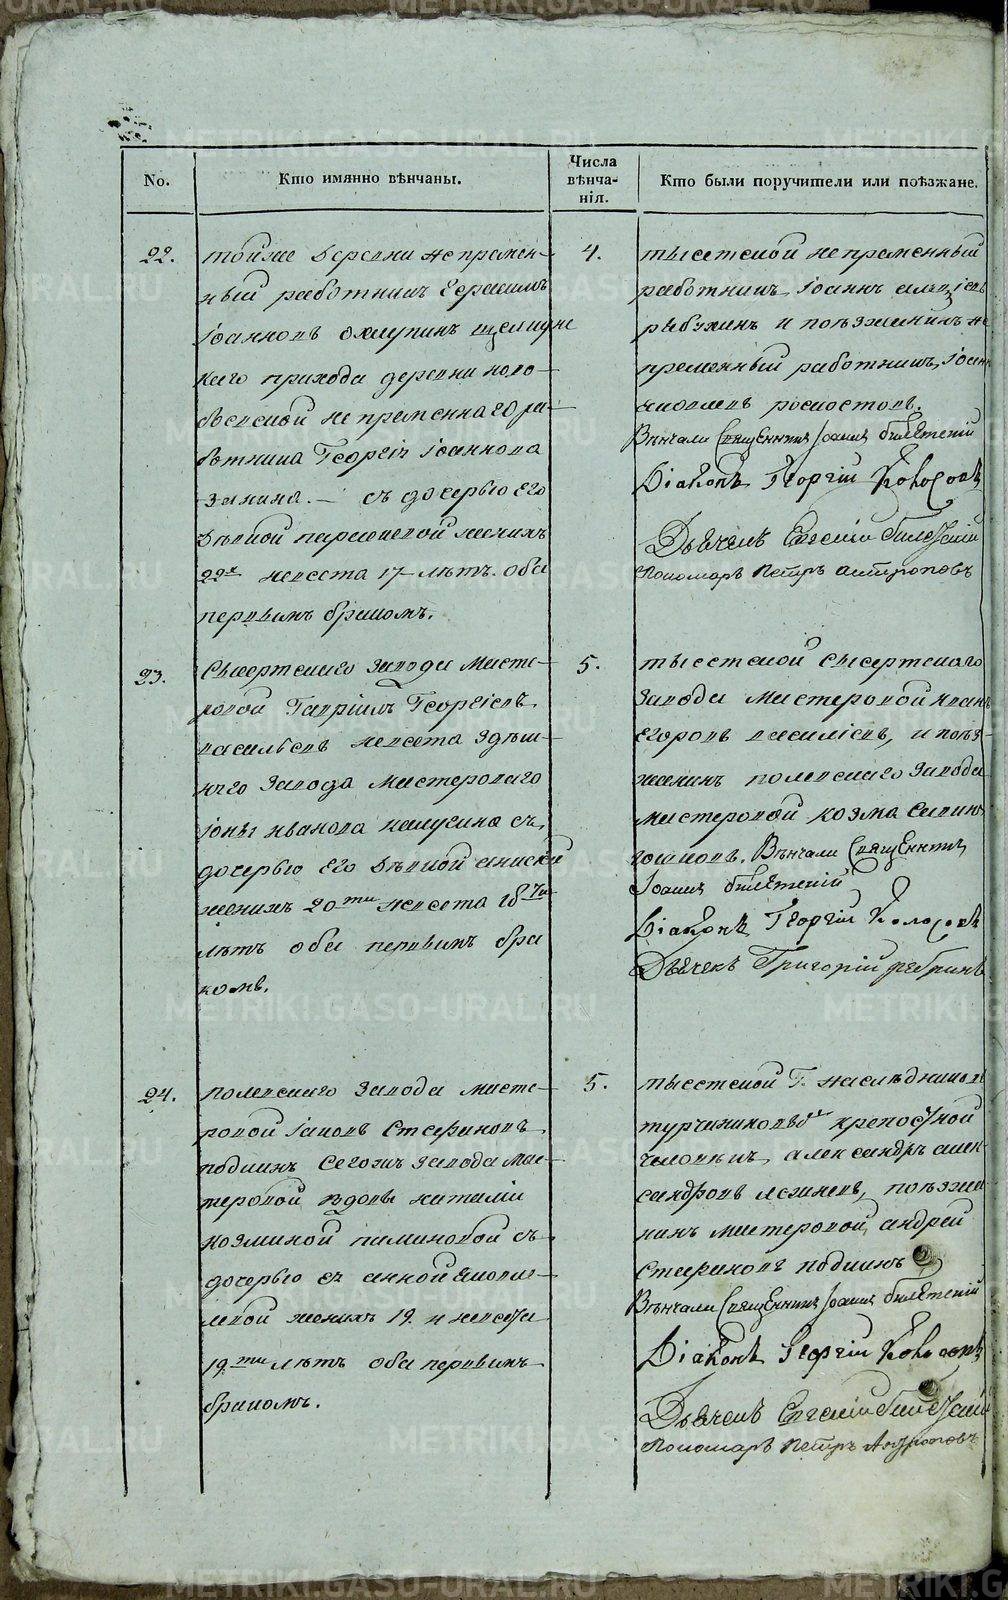 No.
Кто имянно вѣнчаны.
Числа
вѣнча-
нія.
Кто были поручители или поѣзжане.
22.
тойже деревни непремен-
ный работникъ Герасимъ
Іоанновъ Охлупинъ Щелкунс
каго прихода деревни ново-
ной непременнаго ра-
ботника Георгія Іоаннова
Зимина. — съ дочерью его
дѣвкой жених
22х невеста 17 лѣтъ. оба
первымъ бракомъ.
4.
тысетской непременный
работникъ Іоаннъ
и поѣзжанинъ не
пременный работникъ, Іоанн
Вѣнчали Священникъ Іоаннъ
Діаконъ Георгій Колосовъ
Дьячекъ Евгеній
Пономарь Петръ Антроповъ
23.
Сысертскаго завода масте-
ровой Гавріилъ Георгіевъ
Васильевъ невеста здѣш-
няго завода мастероваго
Іоны Иванова съ
дочерью его дѣвкой
женихъ 20ти невеста 18ти
лѣтъ оба первымъ бра
комъ.
5.
тысетской Сысертскаго
завода мастеровой Иванъ
Егоровъ Васильевъ, и поѣз-
жанинъ Полевскаго завода
мастеровой Козма
Вѣнчали Священникъ
Іоаннъ
Діаконъ Георгій Колосовъ
Дьячекъ Григорій
24.
Полевскаго завода масте-
ровой Іаковъ Стефановъ
сегожъ завода мас-
теровой вдовы Наталіи
Козминой съ
дочерью ея Анной Яковле-
вой женихъ 19. и невеста
19ти лѣтъ оба первымъ
бракомъ.
5.
тысетской Г. наслѣдниковъ
Турчаниновыхъ крепостной
человѣкъ, Александръ Алек-
сандровъ поѣзжа
нинъ мастеровой Андрей
Стефановъ
Вѣнчали Священникъ Іоаннъ
Діаконъ Георгій Колосовъ
Дьячекъ Евгеній
Пономарь Петръ Антроповъ
METRIKI.GASO-URAL.RU